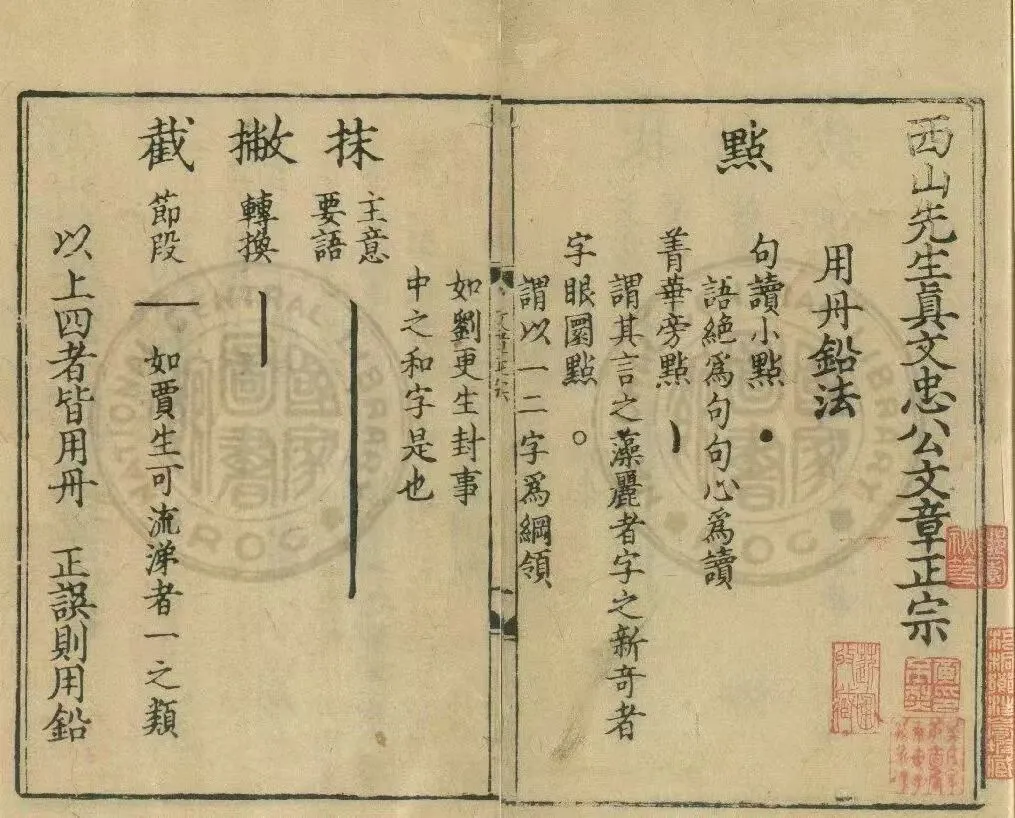 西山先生真文忠公文章正宗
用丹鉛法
點
句讀小點
語絕爲句句心爲讀
菁華旁點
謂其言之藻麗者字之新奇者
字眼圏點
謂以一二字爲綱領
如劉更生封事
中之和字是也
抹
主意
要語
撇
轉換
截
節段
如賈生可流涕者一之類
以上四者皆用丹 正誤則用鉛
文章正宗